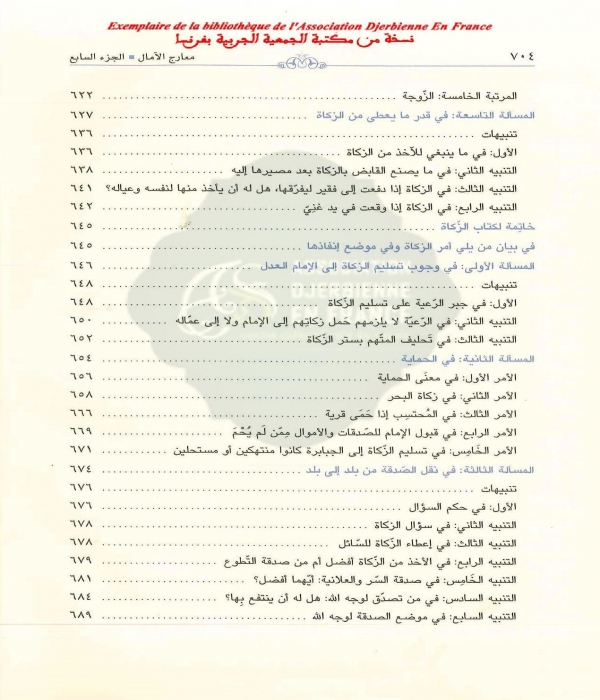 Exemplaire de la bibliothèque de l'Association Djerbienne En France
نسخة من مكتبة الجمعية الجربية بفرنسا
٧٠٤ معارج الآمال الجزء السابع
المرتبة الخامسة: الزّوجة ٦٢٢
المسألة التاسعة: في قدر ما يعطى من الزكاة ٦٢٧
تنبيهات ٦٣٦
الأول: في ما ينبغي للآخذ من الزكاة ٦٣٦
التنبيه الثاني: في ما يصنع القابض بالزكاة بعد مصيرها إليه ٦٣٨
التنبيه الثالث: في الزكاة إذا دفعت إلى فقير ليفرّقها، هل له أن يأخذ منها لنفسه وعياله؟ ٦٤١
التنبيه الرابع: في الزكاة إذا وقعت في يد غنيّ ٦٤٢
خاتمة لكتاب الزّكاة ٦٤٥
في بيان من يلي أمر الزكاة وفي موضع إنفاذها ٦٤٥
المسألة الأولى: في وجوب تسليم الزكاة إلى الإمام العدل ٦٤٦
تنبيهات ٦٤٨
الأول: في جبر الرّعية على تسليم الزّكاة ٦٤٨
التنبيه الثاني: في الرّعيّة لا يلزمهم حَمل زكاتِهم إلى الإمام ولا إلى عمّاله ٦٥٠
التنبيه الثالث: في تَحليف المتّهم بستر الزّكاة ٦٥٢
المسألة الثانية: في الحماية ٦٥٤
الأمر الأول: في معنَى الحماية ٦٥٦
الأمر الثاني: في زكاة البحر ٦٥٨
الأمر الثالث: في المُحتسِب إذا حَمَى قرية ٦٦٦
الأمر الرابع: في قبول الإمام للصّدقات والأموال مِمّن لَم يُحْمَ ٦٦٩
الأمر الخَامِس: في تسليم الزّكاة إلى الجبابرة كانوا منتهكين أو مستحلين ٦٧١
المسألة الثالثة: في نقل الصّدقة من بلد إلى بلد ٦٧٤
تنبيهات ٦٧٦
الأول: في حكم السؤال ٦٧٦
التنبيه الثاني: في سؤال الزكاة ٦٧٨
التنبيه الثالث: في إعطاء الزّكاة للسّائل ٦٧٨
التنبيه الرابع: في الآخذ من الزّكاة أفضل أم من صدقة التّطوع ٦٧٩
التنبيه الخَامِس: في صدقة السّر والعلانية: أيّهما أفضل؟ ٦٨١
التنبيه السادس: في من تصدّق لوجه الله: هل له أن ينتفع بِها؟ ٦٨٤
التنبيه السابع: في موضع الصدقة لوجه الله ٦٨٩
DJERBIENNE
EN FRANCE